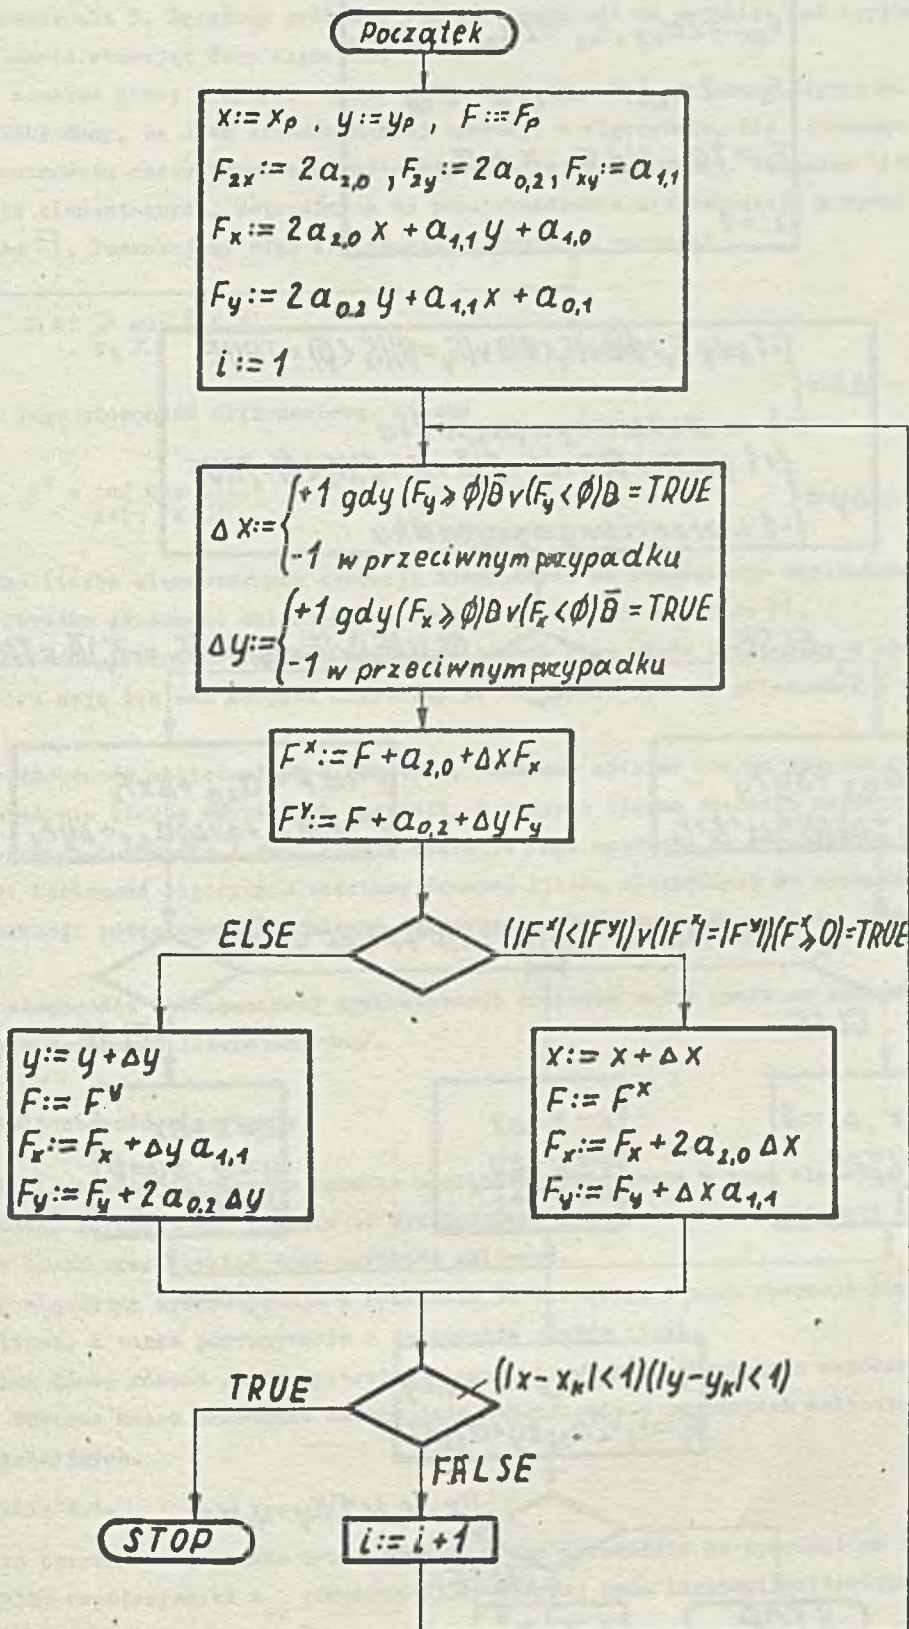 Początek
x:= x_p , y:= y_p , F:= F_p
F_2x:= 2a_2,0 , F_2y:= 2a_0,2 , F_xy:= a_1,1
F_x:= 2a_2,0 x + a_1,1 y + a_1,0
F_y:= 2a_0,2 y + a_1,1 x + a_0,1
i:= 1
Δx:= { +1 gdy (F_y ⩾ ϕ)B̄ v (F_y < ϕ)B = TRUE
-1 w przeciwnym przypadku
Δy:= { +1 gdy (F_x ⩾ ϕ)B v (F_x < ϕ)B̄ = TRUE
-1 w przeciwnym przypadku
F^x:= F + a_2,0 + Δx F_x
F^y:= F + a_0,2 + Δy F_y
ELSE
(|F^x| < |F^y|) v (|F^x| = |F^y|)(F^x ⩾ 0) = TRUE
y:= y + Δy
F:= F^y
F_x:= F_x + Δy a_1,1
F_y:= F_y + 2a_0,2 Δy
x:= x + Δx
F:= F^x
F_x:= F_x + 2a_2,0 Δx
F_y:= F_y + Δx a_1,1
TRUE
(|x - x_k| < 1)(|y - y_k| < 1)
FALSE
STOP
i:= i + 1